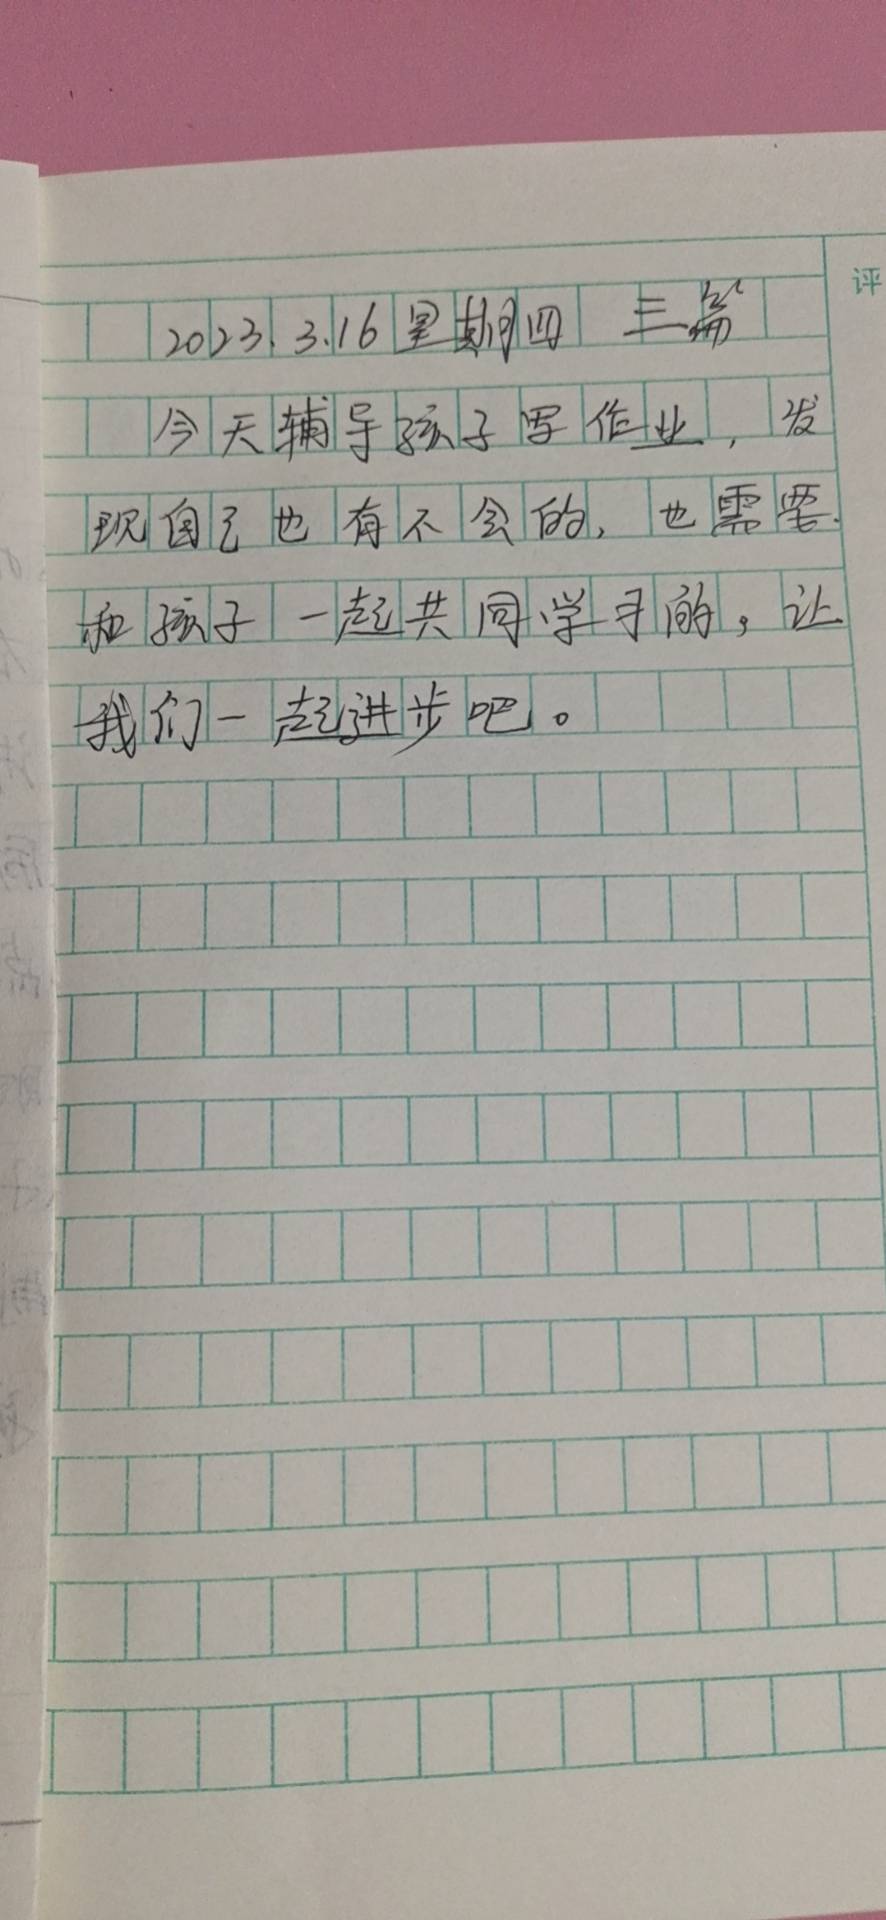 评
2023.3.16 星期四 三篇
今天辅导孩子写作业，发
现自己也有不会的，也需要
和孩子一起共同学习的，让
我们一起进步吧。